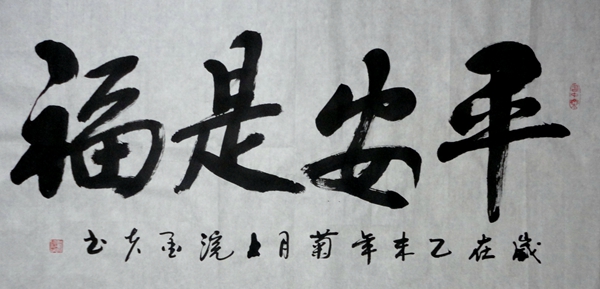 平安是福
歲在乙未年菊月上浣书